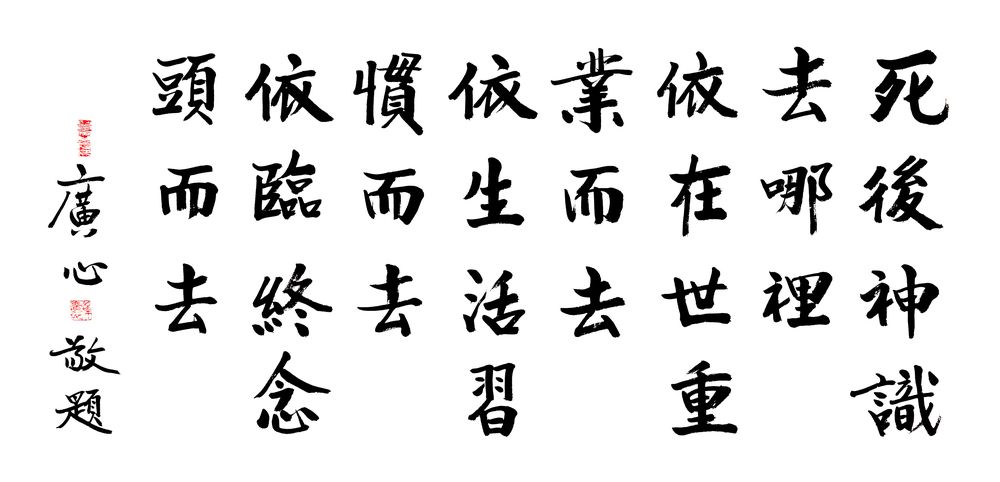 死後神識
去哪裡
依在世重
業而去
依生活習
慣而去
依臨終念
頭而去
廣心敬題